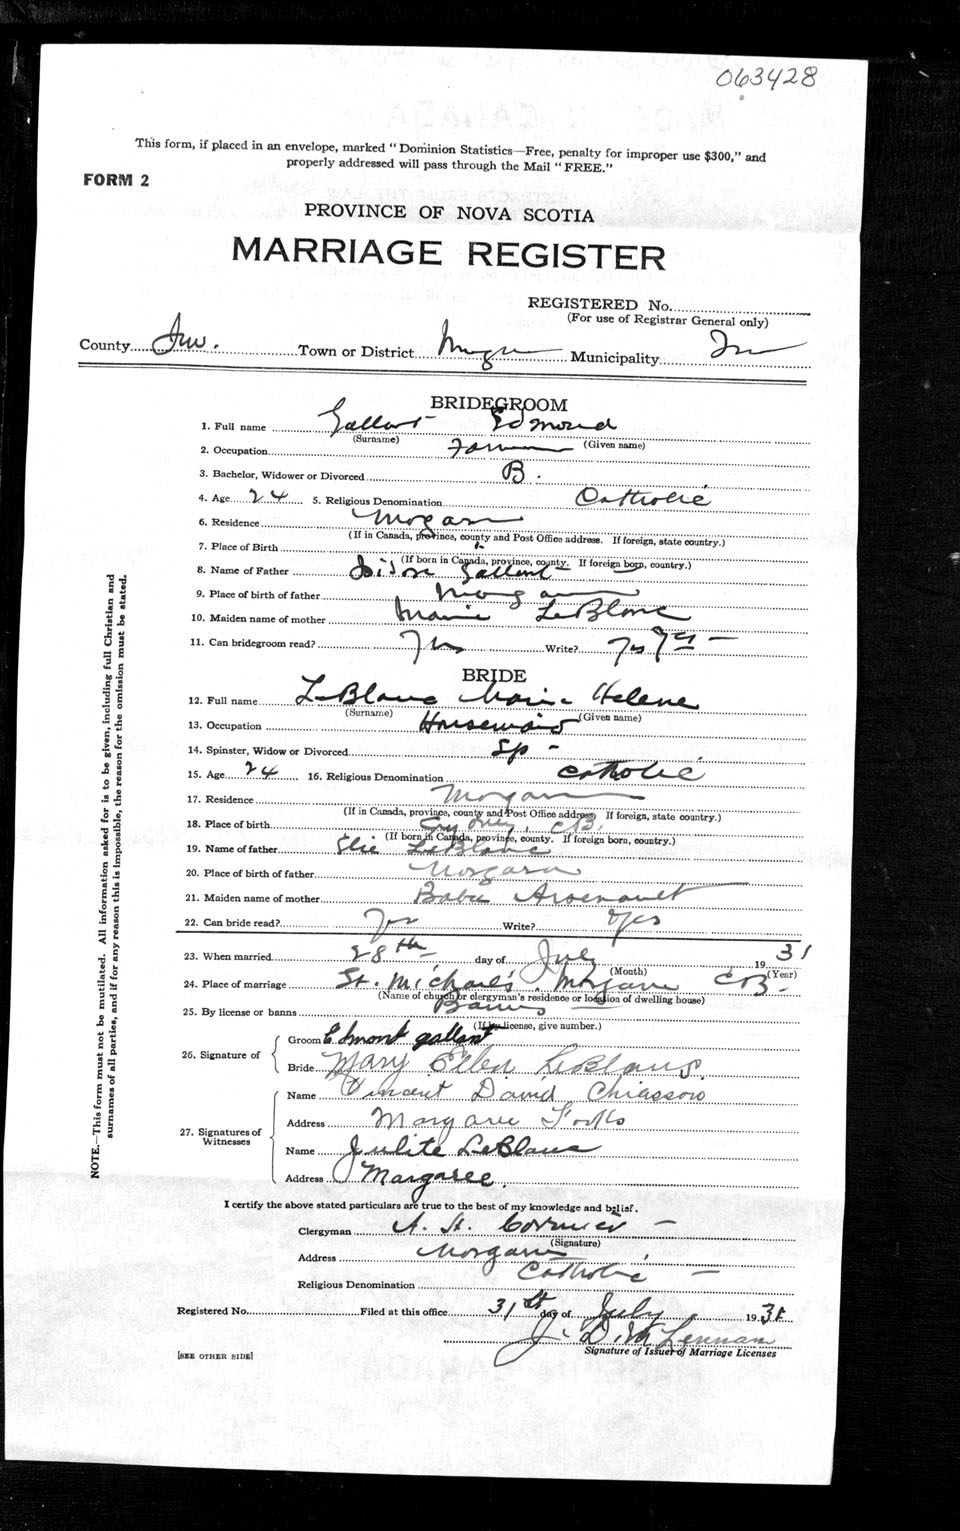 063428
This form, if placed in an envelope, marked "Dominion Statistics—Free, penalty for improper use $300," and
properly addressed will pass through the Mail "FREE."
FORM 2
PROVINCE OF NOVA SCOTIA
MARRIAGE REGISTER
REGISTERED No.
(For use of Registrar General only)
County Inv. Town or District Municipality Inv
BRIDEGROOM
1. Full name Gallant Edmond
(Surname) (Given name)
2. Occupation Farmer
3. Bachelor, Widower or Divorced B.
4. Age 24 5. Religious Denomination Catholic
6. Residence Margaree
(If in Canada, province, county and Post Office address. If foreign, state country.)
7. Place of Birth
(If born in Canada, province, county. If foreign born, country.)
8. Name of Father Gallant
9. Place of birth of father Margaree
10. Maiden name of mother Marie LeBlanc
11. Can bridegroom read? Yes Write? Yes
BRIDE
12. Full name LeBlanc Marie Helene
(Surname) (Given name)
13. Occupation Housemaid
14. Spinster, Widow or Divorced Sp -
15. Age 24 16. Religious Denomination Catholic
17. Residence Margaree
(If in Canada, province, county and Post Office address. If foreign, state country.)
18. Place of birth Sydney, CB.
(If born in Canada, province, county. If foreign born, country.)
19. Name of father Elie LeBlanc
20. Place of birth of father Margaree
21. Maiden name of mother Arsenault
22. Can bride read? Yes Write? Yes
23. When married 28th day of July 1931
(Month) (Year)
24. Place of marriage St. Michael's, Margaree CB-
(Name of church or clergyman's residence or location of dwelling house)
25. By license or banns Banns
(If by license, give number.)
26. Signature of Groom Edmont gallant
Bride Mary Ellen LeBlanc.
27. Signatures of Witnesses
Name Vincent David Chiasson
Address Margaree Forks
Name Julite LeBlanc
Address Margaree.
I certify the above stated particulars are true to the best of my knowledge and belief.
Clergyman A. H. Cormier -
(Signature)
Address Margaree
Religious Denomination Catholic -
Registered No. Filed at this office 31st day of July 1931
J. D. McLennan
Signature of Issuer of Marriage Licenses
[SEE OTHER SIDE]
NOTE.—This form must not be mutilated. All information asked for is to be given, including full Christian and
surnames of all parties, and if for any reason this is impossible, the reason for the omission must be stated.